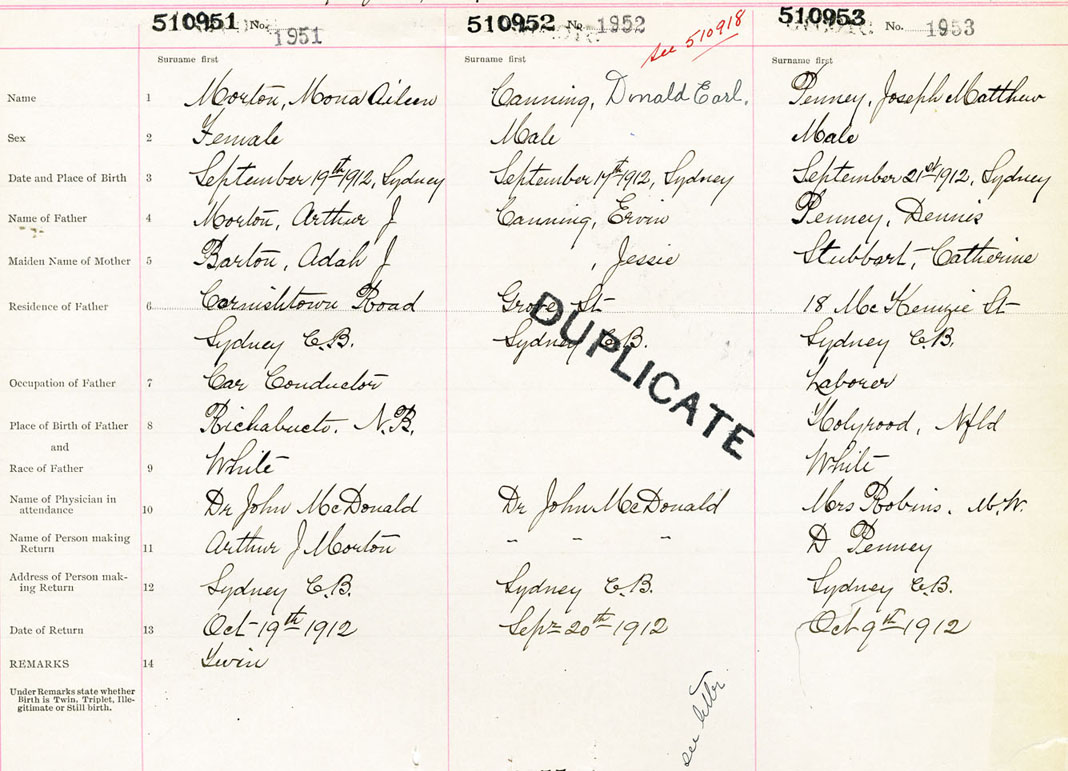 510951 No. 1951
510952 No. 1952
see 510918
510953 No. 1953
Surname first Surname first Surname first
Name 1 Morton, Mona Aileen Canning, Donald Earl. Penney, Joseph Matthew
Sex 2 Female Male Male
Date and Place of Birth 3 September 19th 1912, Sydney September 17th 1912, Sydney September 21st 1912, Sydney
Name of Father 4 Morton, Arthur J Canning, Ervin Penney, Dennis
Maiden Name of Mother 5 Barton, Adah J , Jessie Stubbart, Catherine
Residence of Father 6 Cornishtown Road Grove St 18 Mc Kenzie St
Sydney C.B. Sydney C.B. Sydney C.B.
DUPLICATE
Occupation of Father 7 Car Conductor Laborer
Place of Birth of Father 8 Richabucto. N.B. Holyrood, Nfld
and
Race of Father 9 White White
Name of Physician in
attendance 10 Dr John McDonald Dr John McDonald Mrs Robins. M.W.
Name of Person making
Return 11 Arthur J Morton - - - D Penney
Address of Person mak-
ing Return 12 Sydney C.B. Sydney C.B. Sydney C.B.
Date of Return 13 Oct 19th 1912 Sept 20th 1912 Oct 9th 1912
REMARKS 14 Twin
Under Remarks state whether
Birth is Twin, Triplet, Ille-
gitimate or Still birth.
see letter